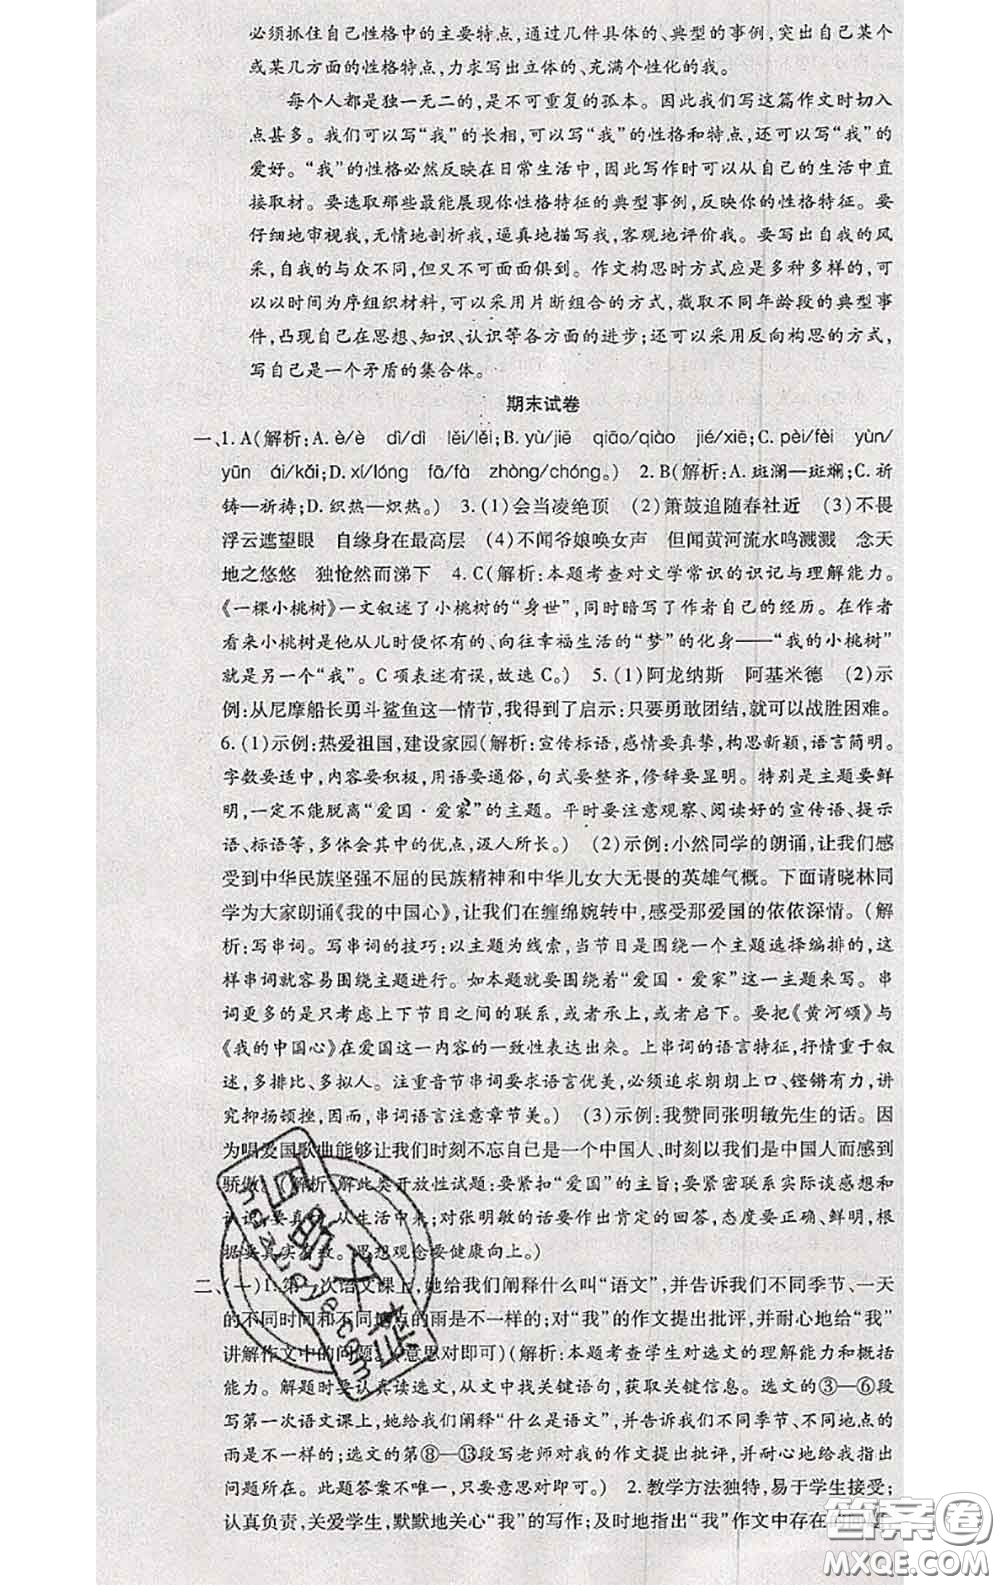 必须抓住自己性格中的主要特点,通过几件具体的、典型的事例,突出自己某个
或某几方面的性格特点,力求写出立体的、充满个性化的我。
每个人都是独一无二的,是不可重复的孤本。因此我们写这篇作文时切入
点甚多。我们可以写“我”的长相,可以写“我”的性格和特点,还可以写“我”的
爱好。“我”的性格必然反映在日常生活中,因此写作时可以从自己的生活中直
接取材。要选取那些最能展现你性格特征的典型事例,反映你的性格特征。要
仔细地审视我,无情地剖析我,逼真地描写我,客观地评价我。要写出自我的风
采,自我的与众不同,但又不可面面俱到。作文构思时方式应是多种多样的,可
以以时间为序组织材料,可以采用片断组合的方式,截取不同年龄段的典型事
件,凸现自己在思想、知识、认识等各方面的进步;还可以采用反向构思的方式,
写自己是一个矛盾的集合体。
期末试卷
一、1. A(解析:A. è/è dì/dì lěi/lěi;B. yù/jiē qiāo/qiào jié/xiē;C. pèi/fèi yùn/
yūn ái/kǎi;D. xí/lóng fā/fà zhòng/chóng。) 2. B(解析:A. 斑澜—斑斓;C. 祈
铸—祈祷;D. 织热—炽热。) 3. (1)会当凌绝顶 (2)箫鼓追随春社近 (3)不畏
浮云遮望眼 自缘身在最高层 (4)不闻爷娘唤女声 但闻黄河流水鸣溅溅 念天
地之悠悠 独怆然而涕下 4. C(解析:本题考查对文学常识的识记与理解能力。
《一棵小桃树》一文叙述了小桃树的“身世”,同时暗写了作者自己的经历。在作者
看来小桃树是他从儿时便怀有的、向往幸福生活的“梦”的化身——“我的小桃树”
就是另一个“我”。C项表述有误,故选C。) 5. (1)阿龙纳斯 阿基米德 (2)示
例:从尼摩船长勇斗鲨鱼这一情节,我得到了启示:只要勇敢团结,就可以战胜困难。
6. (1)示例:热爱祖国,建设家园(解析:宣传标语,感情要真挚,构思新颖,语言简明。
字数要适中,内容要积极,用语要通俗,句式要整齐,修辞要显明。特别是主题要鲜
明,一定不能脱离“爱国·爱家”的主题。平时要注意观察、阅读好的宣传语、提示
语、标语等,多体会其中的优点,汲人所长。) (2)示例:小然同学的朗诵,让我们感
受到中华民族坚强不屈的民族精神和中华儿女大无畏的英雄气概。下面请晓林同
学为大家朗诵《我的中国心》,让我们在缠绵婉转中,感受那爱国的依依深情。(解
析:写串词。写串词的技巧:以主题为线索,当节目是围绕一个主题选择编排的,这
样串词就容易围绕主题进行。如本题就要围绕着“爱国·爱家”这一主题来写。串
词更多的是只考虑上下节目之间的联系,或者承上,或者启下。要把《黄河颂》与
《我的中国心》在爱国这一内容的一致性表达出来。上串词的语言特征,抒情重于叙
述,多排比、多拟人。注重音节串词要求语言优美,必须追求朗朗上口、铿锵有力,讲
究抑扬顿挫,因而,串词语言注意章节美。) (3)示例:我赞同张明敏先生的话。因
为唱爱国歌曲能够让我们时刻不忘自己是一个中国人、时刻以我们是中国人而感到
骄傲。(解析:解此类开放性试题:要紧扣“爱国”的主旨;要紧密联系实际谈感想和
认识;要真 从生活中来;对张明敏的话要作出肯定的回答,态度要正确、鲜明,根
据要真实有效。思想观念要健康向上。)
二、(一)1. 第一次语文课上,她给我们阐释什么叫“语文”,并告诉我们不同季节、一天
的不同时间和不同地点的雨是不一样的;对“我”的作文提出批评,并耐心地给“我”
讲解作文中的问题。(意思对即可)(解析:本题考查学生对选文的理解能力和概括
能力。解题时要认真读选文,从文中找关键语句,获取关键信息。选文的③—⑥段
写第一次语文课上,她给我们阐释“什么是语文”,并告诉我们不同季节、不同地点的
雨是不一样的;选文的第⑧—⑬段写老师对我的作文提出批评,并耐心地给我指出
问题所在。此题答案不唯一,只要意思对即可。) 2. 教学方法独特,易于学生接受;
认真负责,关爱学生,默默地关心“我”的写作;及时地指出“我”作文中存在
答案圈
MXQE.COM